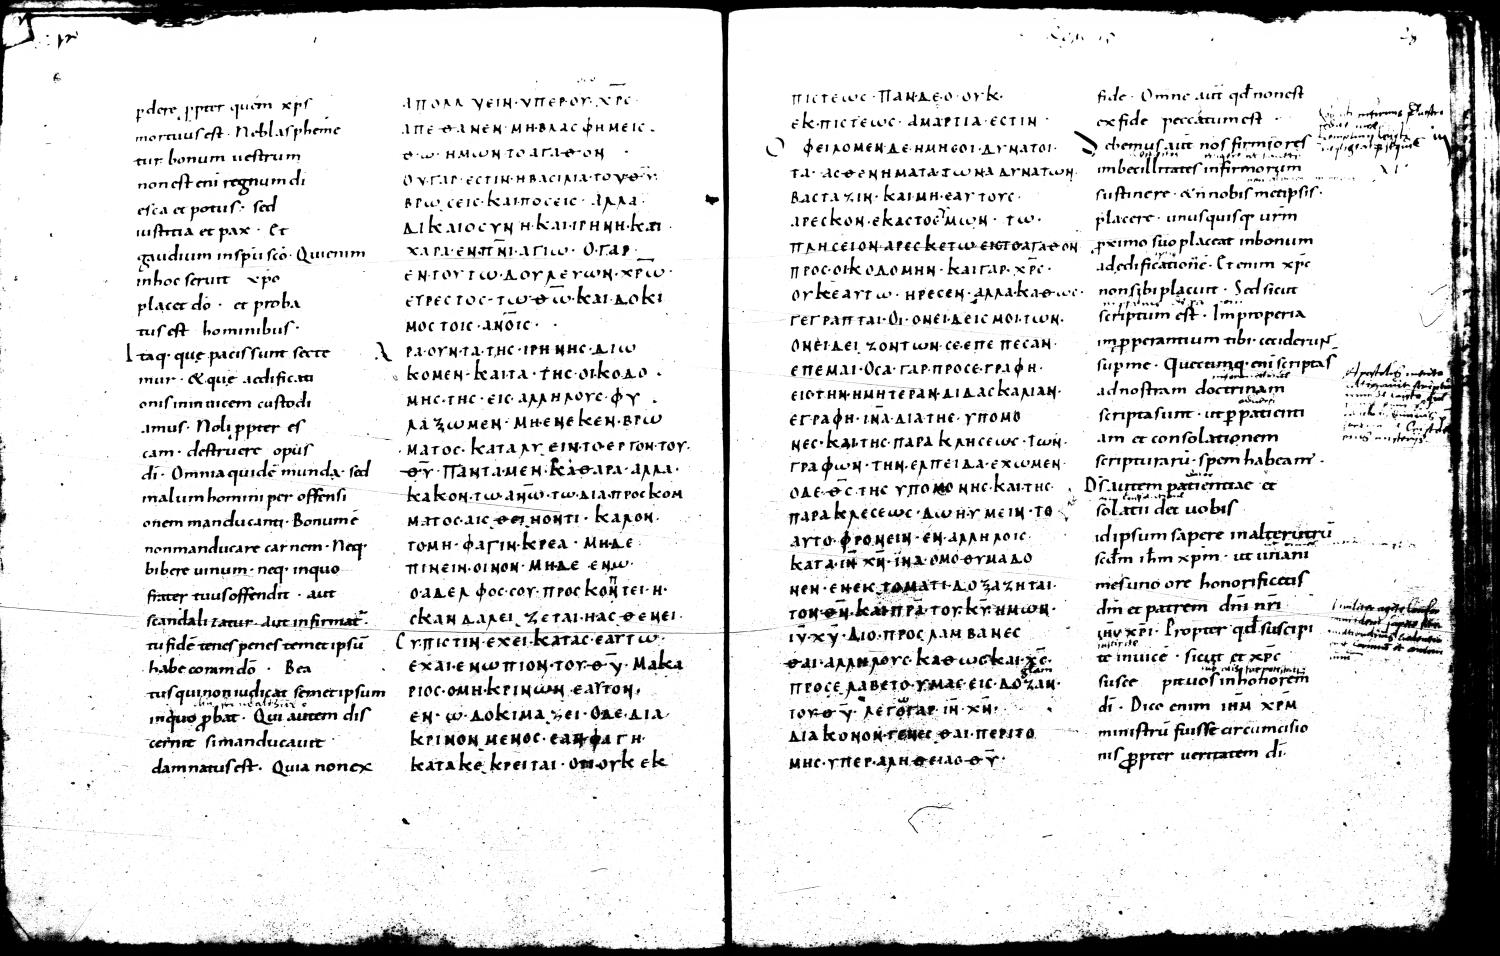 pdere ppter quem xps
mortuus est · No blaspheme
tur bonum uestrum
non est eni regnum di
esca et potus · sed
iustitia et pax · Et
gaudium in spu sco · Qui enim
in hoc seruit xpo
placet do · et proba
tus est hominibus ·
Itaq · que pacis sunt secte
mur · & que aedificati
onis in inuicem custodi
amus · Noli ppter es
cam · destruere opus
di · Omnia quidē munda · sed
malum homini per offensi
onem manducanti · Bonum ē
non manducare carnem · Neq ·
bibere uinum · neq · in quo
frater tuus offendit · aut
scandalizatur · aut infirmat̄
tu fidē tenes penes temet ipsū
habe coram dō · Bea
tus qui non iudicat semet ipsum
in quo pbat · Qui autem dis
cernit si manducauit
damnatus est · Quia non ex
ΑΠΟΛΛΥΕΙΝ·ΥΠΕΡ·ΟΥ·ΧΡC·
ΑΠΕΘΑΝΕΝ·ΜΗ·ΒΛΑCΦΗΜΕΙC·
ΘΩ·ΗΜΩΝ ΤΟ ΑΓΑΘΟΝ
ΟΥ·ΓΑΡ·ΕCΤΙΝ·Η ΒΑCΙΛΙΑ·ΤΟΥ ΘΥ·
ΒΡΩCΕΙC·ΚΑΙ ΠΟCΕΙC·ΑΛΛΑ·
ΔΙΚΑΙΟCΥΝΗ·ΚΑΙ·ΙΡΗΝΗ·ΚΑΙ·
ΧΑΡΑ·ΕΝ·ΠΝΙ·ΑΓΙΩ·Ο·ΓΑΡ·
ΕΝ·ΤΟΥΤΩ·ΔΟΥΛΕΥΩΝ·ΧΡΩ·
ΕΥΡΕCΤΟC·ΤΩ·ΘΩ·ΚΑΙ·ΔΟΚΙ
ΜΟC ΤΟΙC·ΑΝΟΙC·
ΑΡΑ·ΟΥΝ·ΤΑ·ΤΗC·ΙΡΗΝΗC·ΔΙΩ
ΚΟΜΕΝ·ΚΑΙ ΤΑ·ΤΗC·ΟΙΚΟΔΟ·
ΜΗC·ΤΗC·ΕΙC·ΑΛΛΗΛΟΥC·ΦΥ·
ΛΑΞΩΜΕΝ·ΜΗ·ΕΝΕΚΕΝ·ΒΡΩ
ΜΑΤΟC·ΚΑΤΑΛΥΕΙΝ·ΤΟ·ΕΡΓΟΝ·ΤΟΥ·
ΘΥ·ΠΑΝΤΑ·ΜΕΝ·ΚΑΘΑΡΑ·ΑΛΛΑ·
ΚΑΚΟΝ·ΤΩ·ΑΝΩ·ΤΩ·ΔΙΑ·ΠΡΟCΚΟΜ
ΜΑΤΟC·ΑΙCΘΕΙΝΟΝΤΙ·ΚΑΛΟΝ·
ΤΟ ΜΗ·ΦΑΓΙΝ·ΚΡΕΑ·ΜΗΔΕ·
ΠΙΝΕΙΝ·ΟΙΝΟΝ·ΜΗΔΕ ΕΝΩ·
Ο·ΑΔΕΛΦΟC·CΟΥ·ΠΡΟCΚΟΠΤΕΙ·Η·
CΚΑΝΔΑΛΕΙΖΕΤΑΙ·Η ΑCΘΕΝΕΙ·
CΥ·ΠΙCΤΙΝ·ΕΧΕΙ·ΚΑΤΑ CΕΑΥΤΩ·
ΕΧΑΙ·ΕΝΩΠΙΟΝ·ΤΟΥ·ΘΥ·ΜΑΚΑ
ΡΙΟC·Ο ΜΗ·ΚΡΙΝΩΝ·ΕΑΥΤΟΝ·
ΕΝ·Ω·ΔΟΚΙΜΑΖΕΙ·Ο ΔΕ·ΔΙΑ·
ΚΡΙΝΟΝΜΕΝΟC·ΕΑΝ ΦΑΓΗ·
ΚΑΤΑΚΕΚΡΕΙΤΑΙ·ΟΤΙ ΟΥΚ ΕΚ
ΠΙCΤΕΩC·ΠΑΝ·ΔΕ·Ο·ΟΥΚ·
ΕΚ·ΠΙCΤΕΩC·ΑΜΑΡΤΙΑ·ΕCΤΙΝ·
ΟΦΕΙΛΟΜΕΝ·ΔΕ·ΗΜΗ·ΕΟΙ·ΔΥΝΑΤΟΙ·
ΤΑ·ΑCΘΕΝΗΜΑΤΑ·ΤΩΝ ΑΔΥΝΑΤΩΝ·
ΒΑCΤΑΖΙΝ·ΚΑΙ·ΜΗ·ΕΑΥΤΟΥC·
ΑΡΕCΚΟΝ·ΕΚΑCΤΟC ΥΜΩΝ·ΤΩ·
ΠΛΗCΕΙΟΝ·ΑΡΕCΚΕΤΩ ΕΙC ΤΟ ΑΓΑΘΟΝ
ΠΡΟC·ΟΙΚΟΔΟΜΗΝ·ΚΑΙ ΓΑΡ·ΧΡC·
ΟΥΚ ΕΑΥΤΩ·ΗΡΕCΕΝ·ΑΛΛΑ·ΚΑΘΩC·
ΓΕΓΡΑΠΤΑΙ·ΟΙ·ΟΝΕΙΔΕΙCΜΟΙ·ΤΩΝ·
ΟΝΕΙΔΕΙΖΟΝΤΩΝ·CΕ·ΕΠΕΠΕCΑΝ·
ΕΠ ΕΜΑΙ·ΟCΑ·ΓΑΡ·ΠΡΟCΕΓΡΑΦΗ·
ΕΙC ΤΗΝ·ΗΜΗΤΕΡΑΝ·ΔΙΔΑCΚΑΛΙΑΝ·
ΕΓΡΑΦΗ·ΙΝΑ·ΔΙΑ·ΤΗC·ΥΠΟΜΟ
ΝΕC·ΚΑΙ·ΤΗC·ΠΑΡΑΚΛΗCΕΩC·ΤΩΝ·
ΓΡΑΦΩΝ·ΤΗΝ·ΕΛΠΕΙΔΑ·ΕΧΩΜΕΝ·
Ο ΔΕ·ΘC·ΤΗC ΥΠΟΜΟΝΗC·ΚΑΙ·ΤΗC·
ΠΑΡΑΚΛΕCΕΩC·ΔΩΗ·ΥΜΕΙΝ·ΤΟ
ΑΥΤΟ·ΦΡΟΝΕΙΝ·ΕΝ·ΑΛΛΗΛΟΙC·
ΚΑΤΑ·ΙΝ ΧΝ·ΙΝΑ·ΟΜΟΘΥΜΑΔΟ
ΝΕΝ·ΕΝΕΚ CΤΟΜΑΤΙ·ΔΟΞΑΖΗΤΑΙ·
ΤΟΝ·ΘΝ·ΚΑΙ·ΠΡΑ·ΤΟΥ·ΚΥ·ΗΜΩΝ·
ΙΥ·ΧΥ·ΔΙΟ·ΠΡΟCΛΑΜΒΑΝΕC
ΘΑΙ·ΑΛΛΗΛΟΥC·ΚΑΘΩC ΚΑΙ·ΧC·
ΠΡΟCΕΛΑΒΕΤΟ·ΥΜΑC·ΕΙC·ΔΟΞΑΝ·
ΤΟΥ·ΘΥ·ΛΕΓΩ ΓΑΡ·ΙΝ·ΧΝ·
ΔΙΑΚΟΝΟΝ·ΓΕΝΕCΘΑΙ·ΠΕΡΙΤΟ
ΜΗC·ΥΠΕΡ·ΑΛΗΘΕΙΑC·ΘΥ·
fide · Omne aūt qd non est
ex fide peccatum est ·
Debemus aūt nos firmiores
imbecillitates infirmorum
sustinere · & n̄ nobis metipsis ·
placere · unusquisq urm
pximo suo placeat in bonum
ad edificationē · Et enim xps
non sibi placuit · Sed sicut
scriptum est · Improperia
improperantium tibi · ceciderur̄
sup me · Quecumq · eni scripta s̄
ad nostram doctrinam
scripta sunt · ut p patienti
am et consolationem
scripturarū · spem habeam ·
Ds autem patientiae et
solatii det uobis
id ipsum sapere in alterutrū
scdm ihm xpm · ut unani
mes uno ore honorificetis
dm et patrem dni nri
ihu xpi · Propter qd suscipi
te inuicē · sicut et xps
susce pit uos in honorem
di · Dico enim ihm xpm
ministrū fuisse circumcisio
nis ppter ueritatem di